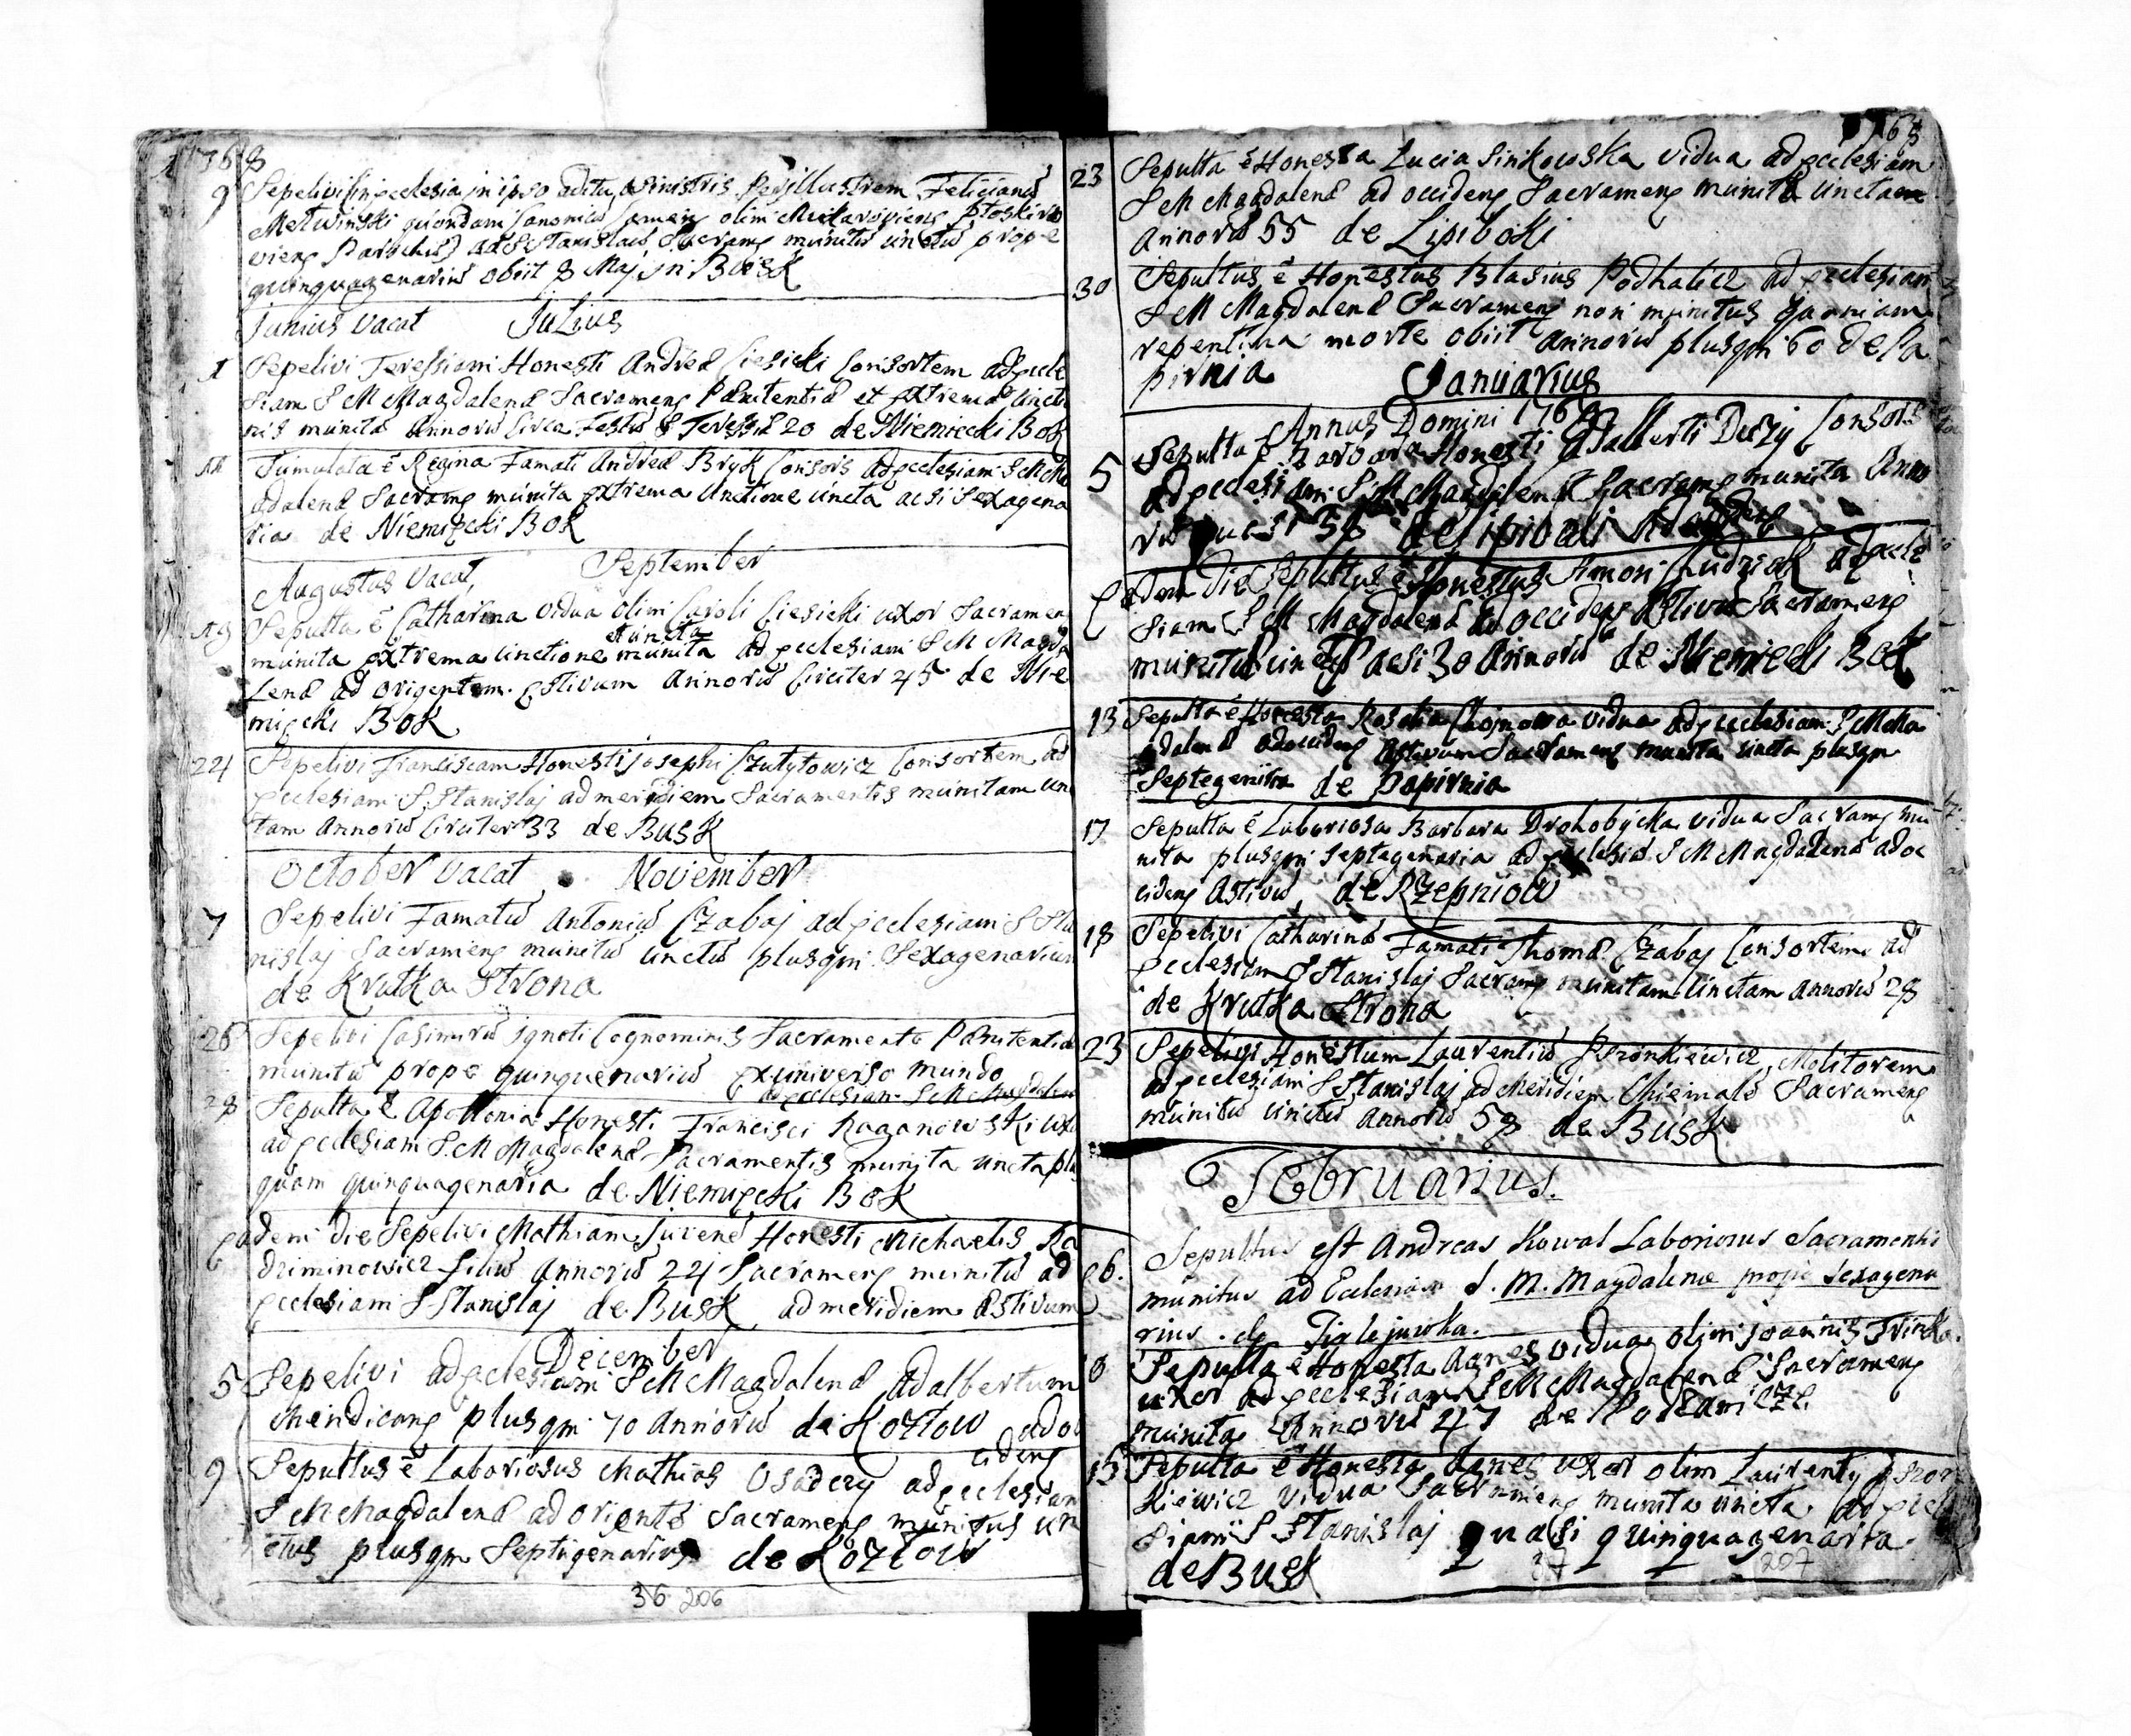 1768
9 Sepelivi in ecclesia in ipso aditu a sinistris Perillustrem Felicianū
quondam Canonicū olim
Parochū ad S Stanislaū Sacrameng munitū unctū prope
quinquagenariū obiit 8 Maj in Busk
Junius Vacat Julius
1 Sepelivi Teressiam Honesti Andreæ Ciesicki Consortem ad eccle
siam S M Magdalenæ Sacrameng Pænitentiæ et extremæ Unctio
nis munitā Annorū Circa Festū S Teressiæ 20 de Niemiecki Bok
11 Tumulata ē Regina Famati Andreæ Bryk Consors ad ecclesiam S M Ma
gdalenæ Sacrameng munita extrema Unctione Uncta acsi Sexagena
ria de Niemiecki Bok
Augustus Vacat, September
19 Sepulta ē Catharina Vidua olim Caroli Ciesicki uxor Sacrameng
munita extrema Unctione munita ad ecclesiam S M Magda
Lenæ ad origentem Æstivum Annorū Circiter 45 de Nie
miecki Bok
24 Sepelivi Franciscam Honesti Josephi Czutytowicz Consortem ad
ecclesiam S. Stanislaj ad meridiem Sacramentis munitam un
tam Annorū Circiter 33 de Busk
October Vacat November
7 Sepelivi Famatū Antoniū Czabaj ad ecclesiam S Sta
nislaj Sacrameng munitū unctū plusqm Sexagenarium
de Krutka Strona
26 Sepelivi Casimirū ignoti Cognominis Sacramento Pænitentiæ
munitū prope quinquenariū ex universo mundo
ad ecclesiam S M Magdalenæ
28 Sepulta ē Apollonia Honesti Francisci Raganowski uxo
ad ecclesiam S. M Magdalenæ Sacramentis munita uncta plus
quam quinquagenaria de Niemiecki Bok
Eadem die Sepelivi Mathiam Juvenē Honesti Michaelis Ra
dziminowicz filiū Annorū 24 Sacrameng munitū ad
ecclesiam S Stanislaj de Busk ad meridiem Æstivum
December
5 Sepelivi ad ecclesiam S M Magdalenæ Adalbertum
Mendicang plusqm 70 Annorū de Kozłow ad oc
cideng
9 Sepultus ē Laboriosus Mathias Osadczy ad ecclesiam
S M Magdalenæ ad orientē Sacrameng munitus un
ctus plusqm Septugenarius de Kozłow
36 206
1768
23 Sepulta ē Honesta Lucia Sinkowska Vidua ad ecclesiam
S M Magdalenæ ad occideng Sacrameng munita Unctam
Annorū 55 de Lipiboki
30 Sepultus ē Honestus Blasius Podhalicz ad ecclesiam
S M Magdalenæ Sacrameng non munitus quoniam
repentina morte obiit annorū plusqm 60 de Pa
pirnia Januarius
Annus Domini 1769
5 Sepulta ē Barbara Honesti Adalberti Duzy Consors
ad ecclesiam S M Magdalenæ Sacrameng munita Anno
rū quasi 38 de Lipiboki
Eadem die Sepultus ē Honestus Simon Chudziak ad eccle
siam S M Magdalenæ ad occideng Æstivū Sacrameng
munitus unctus acsi 30 Annorū de Niemiecki Bok
13 Sepulta ē Honesta Rosalia Chojnowa vidua ad ecclesiam S M Ma
gdalenæ ad occideng Æstivum Sacrameng munita uncta plusqm
Septegenaria de Papirnia
17 Sepulta ē Laboriosa Barbara Drohobycka vidua Sacrameng mu
nita plusqm Septagenaria ad ecclesiā S M Magdalenæ ad oc
cideng Æstivū, de Rzepniow
18 Sepelivi Catharinā Famati Thomæ Czabaj Consortem ad
ecclesiam S Stanislaj Sacrameng munitam Unctam Annorū 28
de Krutka Strona
23 Sepelivi Honestum Laurentiū Pszonkiewicz, Molitorem
ad ecclesiam S Stanislaj ad Meridiem Chiemale Sacrameng
munitū unctū Annorū 58 de Busk
Februarius.
6. Sepultus est Andreas Kowal Laboriosus Sacramentis
munitus ad Ecclesiam S. M. Magdalenæ prope Sexagena
rius. de
8 Sepulta ē Honesta Agnes vidua olim Joannis Trinka
uxor ad ecclesiam S M Magdalenæ Sacrameng
munita Annorū 47 de Podzamicze
15 Sepulta ē Honesta Agnes uxor olim Laurentij Pszon
kiewicz Vidua Sacrameng munita uncta ad eccle
siam S Stanislaj quasi quinquagenaria
de Busk
37 207